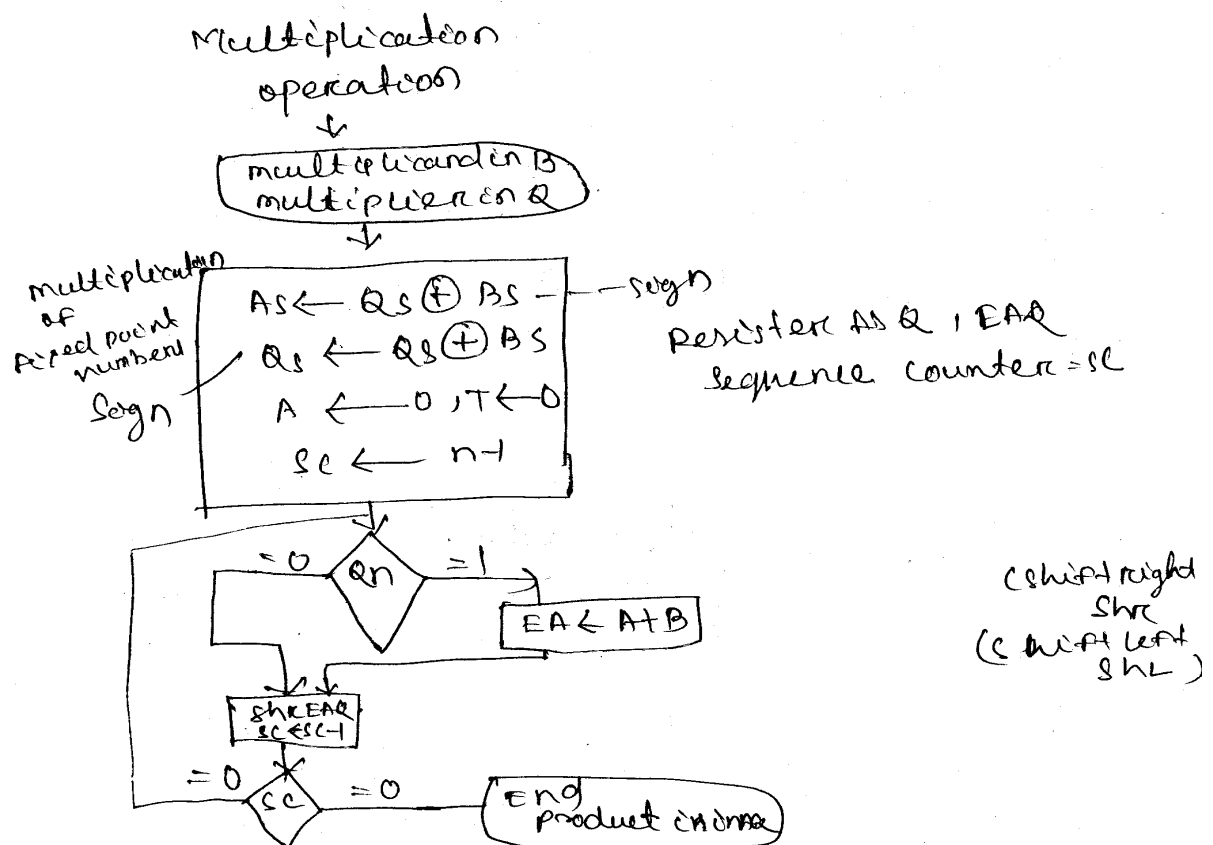 Multiplication
operation
multiplicand in B
multiplier in Q
multiplication
of
fixed point
numbers
Sign
As ← Qs ⊕ BS
sign
Qs ← QS ⊕ BS
A ← 0, T ← 0
SC ← n-1
Register AS Q, EAQ
Sequence counter = SC
= 0
Qn
= 1
EA ← A+B
(shift right
Shr
(shift left
ShL)
Shr EAQ
SC ← SC-1
= 0
SC
= 0
End
product in